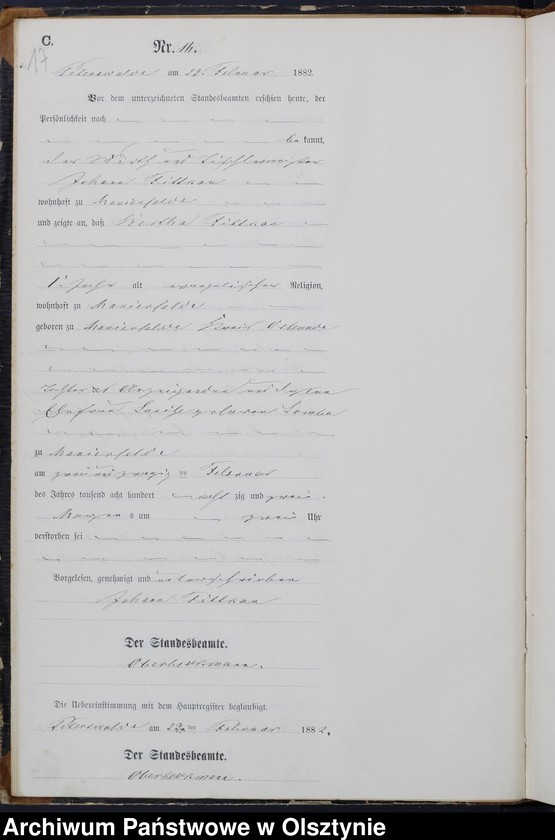 C.
17
Nr. 16.
Peterswalde am 22. Februar 1882.
Vor dem unterzeichneten Standesbeamten erschien heute, der
Persönlichkeit nach
be kannt,
der Wirth und Tischlermeister
Johann Fittkau
wohnhaft zu Maraienfelde
und zeigte an, daß Bertha Fittkau
1 Jahr alt evangelischer Religion,
wohnhaft zu
geboren zu Kreis Osterode
Tochter des und
Ehefrau Louise geborene
zu
am zwei und zwanzig ten Februar
des Jahres tausend acht hundert acht zig und zwei
Morgen s um zwei Uhr
verstorben sei
Vorgelesen, genehmigt und unterschrieben
Johann Fittkau
Der Standesbeamte.
Die Uebereinstimmung mit dem Hauptregister beglaubigt.
Peterswalde am 22 ten Februar 1882.
Der Standesbeamte.
Archiwum Państwowe w Olsztynie